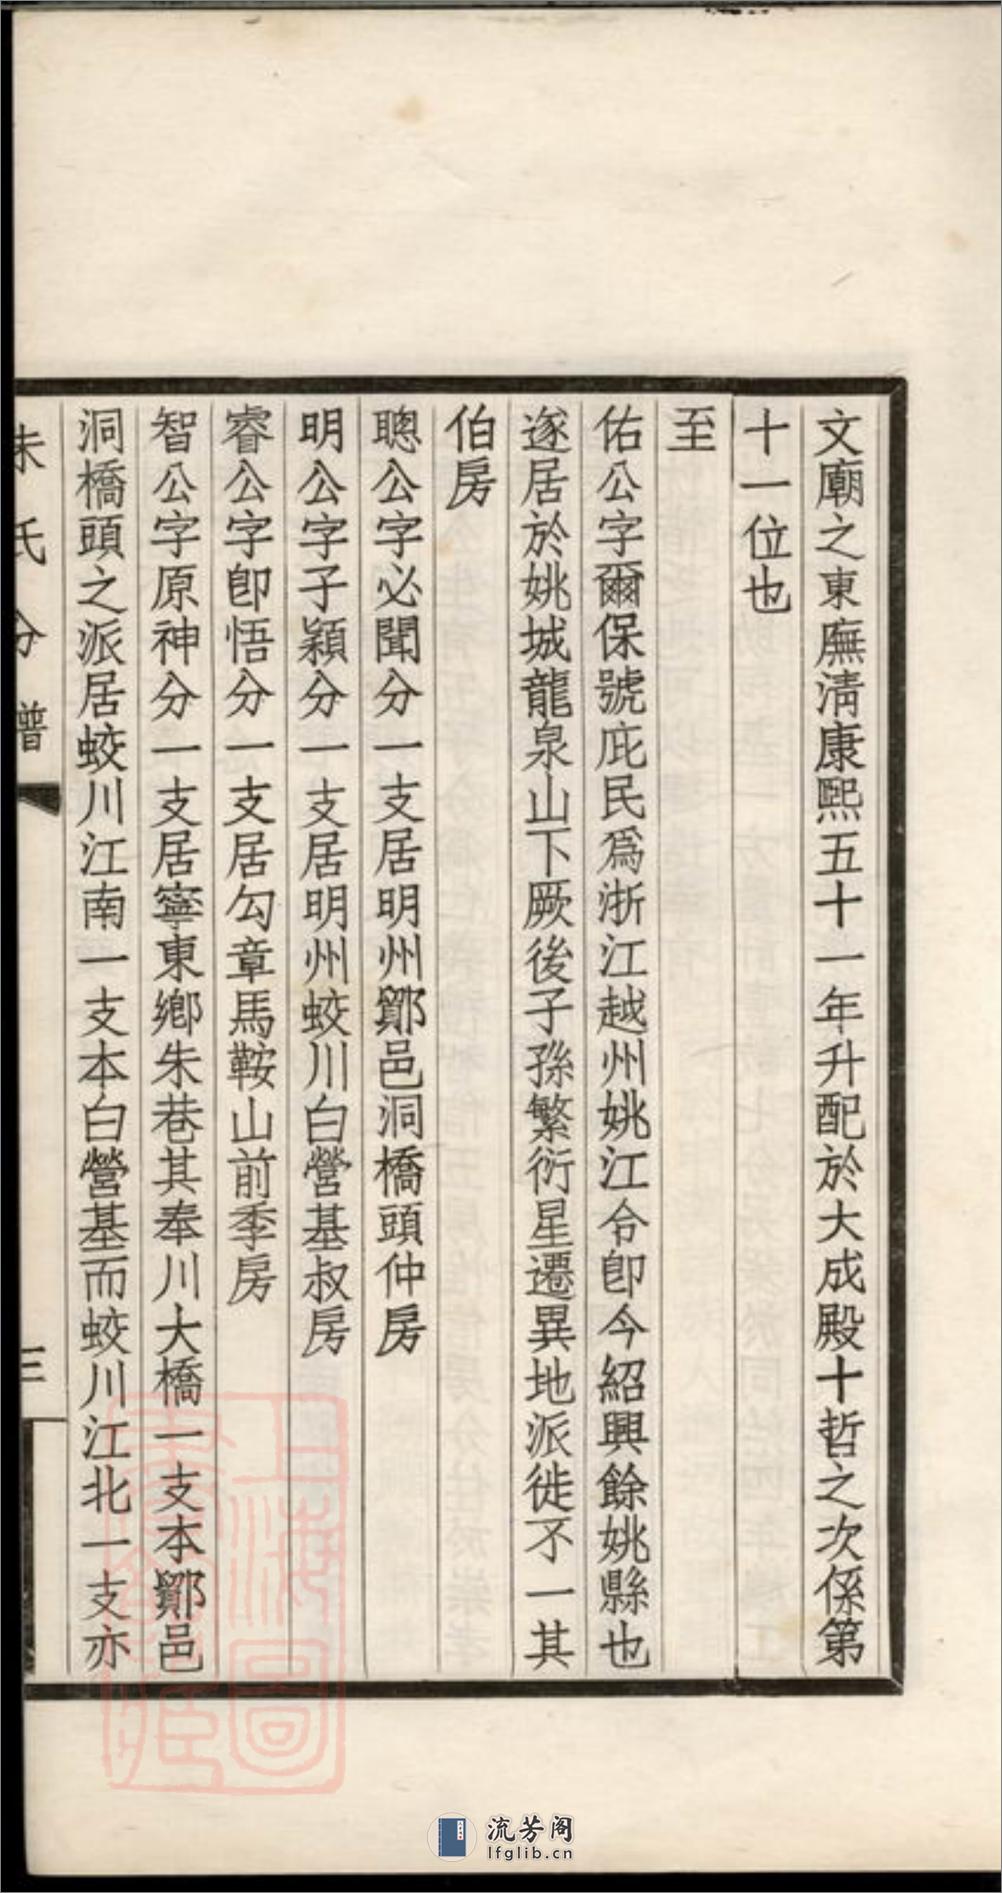 文廟之東廡淸康熙五十一年升配於大成殿十哲之次係第
十一位也
至
佑公字爾保號庇民爲浙江越州姚江令卽今紹興餘姚縣也
遂居於姚城龍泉山下厥後子孫繁衍星遷異地派徙不一其
伯房
聰公字必聞分一支居明州鄞邑洞橋頭仲房
明公字子穎分一支居明州蛟川白營基叔房
睿公字卽悟分一支居勾章馬鞍山前季房
智公字原神分一支居寧東鄉朱巷其奉川大橋一支本鄞邑
洞橋頭之派居蛟川江南一支本白營基而蛟川江北一支亦
朱氏分譜
三
上海圖書館藏
流芳阁
lfglib.cn